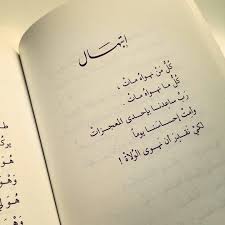 إبتهال
كُلُّ مَن نهواهُ ماتْ ،
كُلُّ ما نهواهُ ماتْ .
رَبِّ ساعِدنا بإحدى المُعجزاتْ
وأَمِتْ إحساسَنا يوماً
لكي نَقدِرَ أن نَهوى الوُلاةْ !
هُوَ
وَهْوَ
وَهْوَ
هُوَ